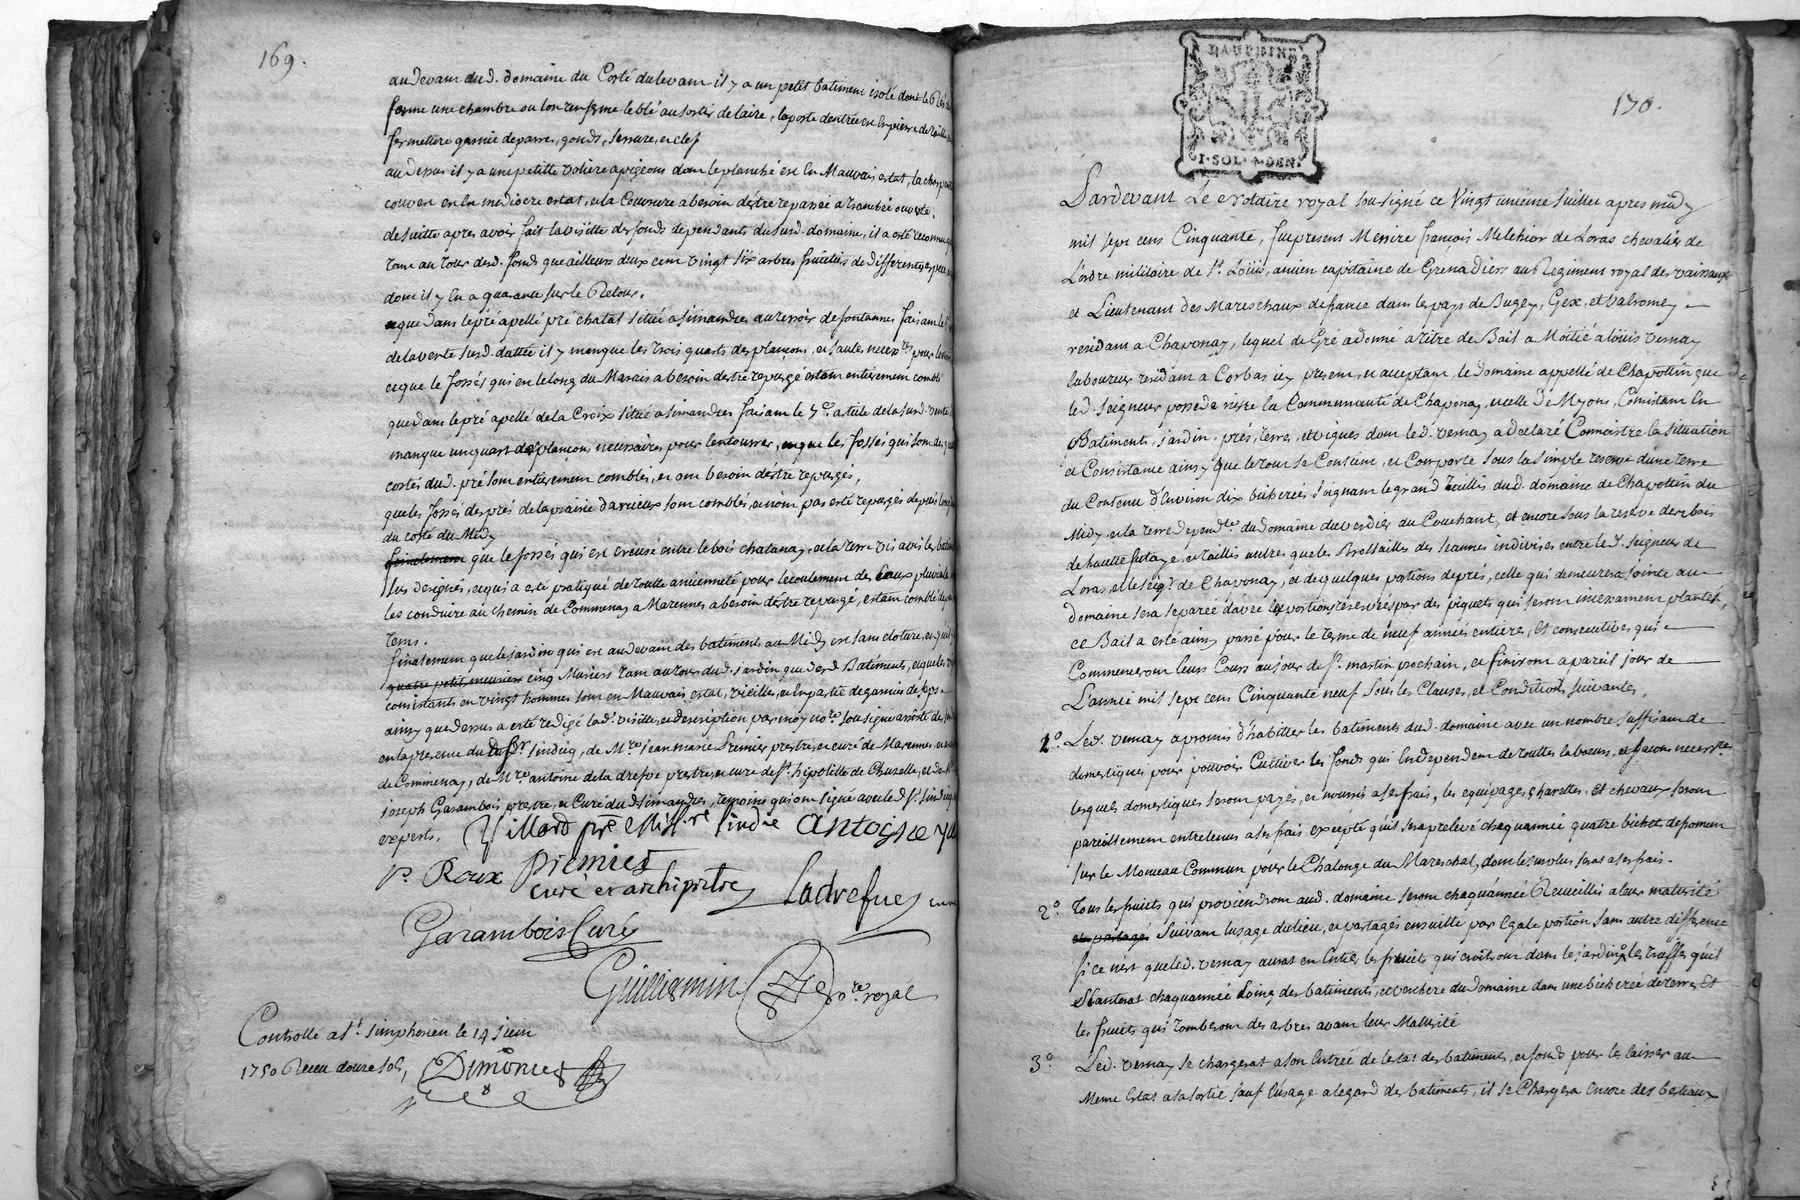 169.
au devant dud. domaine du Costé du levant il y a un petit batiment isolé dont le Rés
forme une chambre ou lon renferme le blé au sortir de laire, la porte dentrée est en pierre de taille
fermetture garnie de parre, gonds, serrure, et clef
au dessus il y a une petitte voliere a pigeons dont le planché est En Mauvais estat, la charpente
couvert est en mediocre estat, et la Couverture a besoin déstre repassée a tranché ouverte,
de suitte apres avoir fait la visitte des fonds dependants du susd. domaine, il a esté reconnu
tant au tour desd. fonds que ailleurs deux cent vingt six arbres fruitiers de differentes
dont il y En a quarante sur le Retour,
que dans le pré apellé pré chatat situé a simandres au terroir de fontannes faisant le
de la vente susd. dattée il y manque les trois quarts des plançons, et saules necessres pour
et que le fossés qui est le long du Marais a besoin destre repurgé estant entierement comblé
que dans le pré apellé de la Croix situé a simandres faisant le 7e. article de la susd. vente
manque un quart des plançons necessaires, pour lentourrer, et que les fossés qui sont des
costés dud. pré sont entierement comblés, et ont besoin destre repurgés,
que les fossés des prés de la prairie darcieux sont comblés, et nont pas esté repurgés depuis
du costé du Midy
finalement que le fossés qui est creusé entre le bois chatanay, et la terre vis avis les batim
sus designés, et qui a esté pratiqué de toutte ancienneté pour lecoulement des Eaux pluvialle
les conduire au chemin de Commenay a Marennes a besoin déstre repurgé, estant comblé
tems.
finalement que le jardin qui est au devant des batiments au Midy est sans cloture, et quil
quatre petits meuriers cinq Muriers tant au tour dud. jardin que desd. Batiments, et que les
consistants en vingt hommes sont en Mauvais estat, vieilles, et En partie degarnies de seps
ainsy que dessus a esté redigé lad. visitte, et description par moy nore. sousigné assisté de
en la presence du dud. Sr. sindicq, de Mre Jean marie Premier prestre, et curé de Marennes,
de Commenay, de Mre antoine de la drefve prestre, et curé de St. hipolitte de Chuzelle, et de
joseph Garambois prestre, et Curé dud. simandres, temoins qui ont signé avec led. Sr. sindicq
experts,
Villard pre Missre sindic antoine
P. Roux premier
curé et archiprêtre Ladrefue
Garambois Curé
Guilliermin nore royal
Controllé a St. simphorien le 14 juin
1750 Recu douze sols, Dimonier
DAUPHINE
I·SOL·4·DEN.
170.
Pardevant Le Notaire royal sousigné ce Vingt unieme Juillet apres midy
mil sept cens Cinquante, fut present Messire françois Melchior de Loras chevalier de
L'ordre militaire de St. Loüis, ancien capitaine de Grenadiers au Regiment royal des vaisseaux
et Lieutenant des Mareschaux de france dans les pays de Bugey, Gex, et Valromey
residant a Chaponay, lequel de Gré a donné a titre de Bail a Moitié a Loüis vernay
laboureur residant a Corbas icy present, et acceptant, le domaine appellé de Chapottin que
led. seigneur possede riere la Communauté de Chaponay, et celle de Myons, Consistant En
Batiments, jardin, prés, terres, et vignes dont led. vernay a declaré Connoistre la situation
et Consistance ainsy que le tout se Contient, et Comporte sous la simple reserve d'une terre
du Contenu d'Environ dix bicherées joignant le grand taillis dud. domaine de Chapottin du
Midy, et la terre dependte. du domaine du verdier au Couchant, et encore sous la reserve des bois
de hautte futaye, et taillis autres que les Brossailles des jeannes indivises entre le d. seigneur de
Loras, et le seigr. de Chaponay, et de quelques portions de prés, celle qui demeurera jointe au
domaine sera separée d'avec les portions reservées par des piquets qui seront incessament plantés,
ce Bail a esté ainsy passé pour le terme de neuf années entieres, Et consecutives qui
Commenceront leurs Cours au jour de St. martin prochain, et finiront a pareil jour de
L'année mil sept cens Cinquante neuf sous les Clauses, et Conditions suivantes,
1o. Led. vernay a promis d'habitter les batiments dud. domaine avec un nombre suffisant de
domestiques pour pouvoir Cultiver les fonds qui En dependent de touttes labours, et façons necessres
lesquels domestiques seront payés, et nourris a ses frais, les equipages, charettes, et chevaux seront
pareillement entretenus a ses frais excepté quil sera prelevé chaque année quatre bichets de froment
sur le Monceau Commun pour le Chalonge du Mareschal, dont le surplus sera a ses frais.
2o. Tous les fruits qui proviendront aud. domaine seront chaque année Recueillis a leur maturité
et partagé suivant lusage du lieu, et partagés ensuitte par Egale portion sans autre difference
si ce nest que led. vernay aurat en Entier les fruits qui croitront dans le jardin, les traffes quil
Planterat chaque année Loing des batiments, et verchere du domaine dans une bicherée de terre, Et
les fruits qui tomberont des arbres avant leur Maturité
3o. Led. vernay se chargerat a son Entrée de lestat des batiments, et fonds pour les laisser au
Meme Estat a sa sortie sauf lusage a legard des batiments, il se Chargera Encore des bestiaux